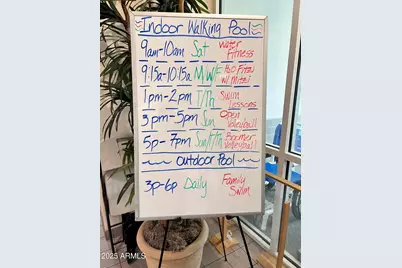 Indoor Walking Pool
9am-10am Sat Water Fitness
9:15a-10:15a M/W/F H2O Fit w/
1pm-2pm T/Th Swim Lessons
3pm-5pm Sun Open Volleyball
5p-7pm Sun/T/Th Boomer Volleyball
Outdoor Pool
3p-6p Daily Family Swim
2025 ARMLS